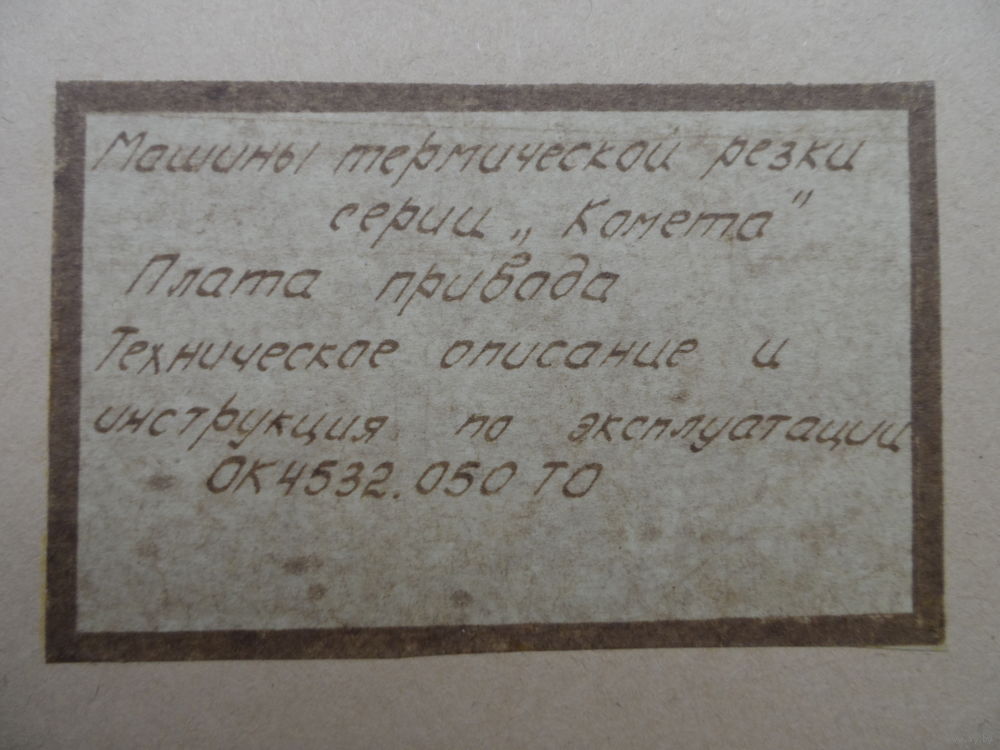 Машины термической резки
серии „Комета"
Плата привода
Техническое описание и
инструкция по эксплуатации
ОК4532.050 ТО